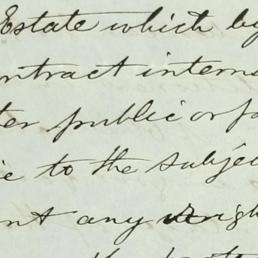 Estate which by
ntract interna
ter public or pa
ie to the subje
nt any righ